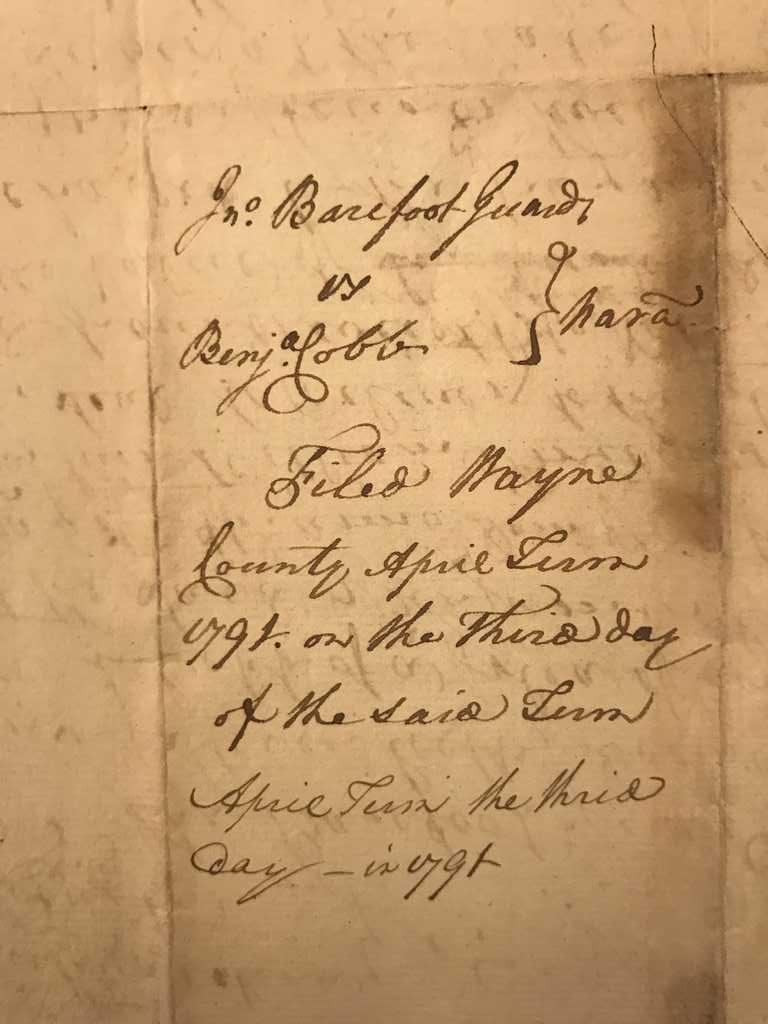 Jno. Barefoot Guardn
vs
Benja. Cobb } Nara
Filed Wayne
County April Term
1791. on the Third day
of the said Term
April Term the thrid
day - in 1791